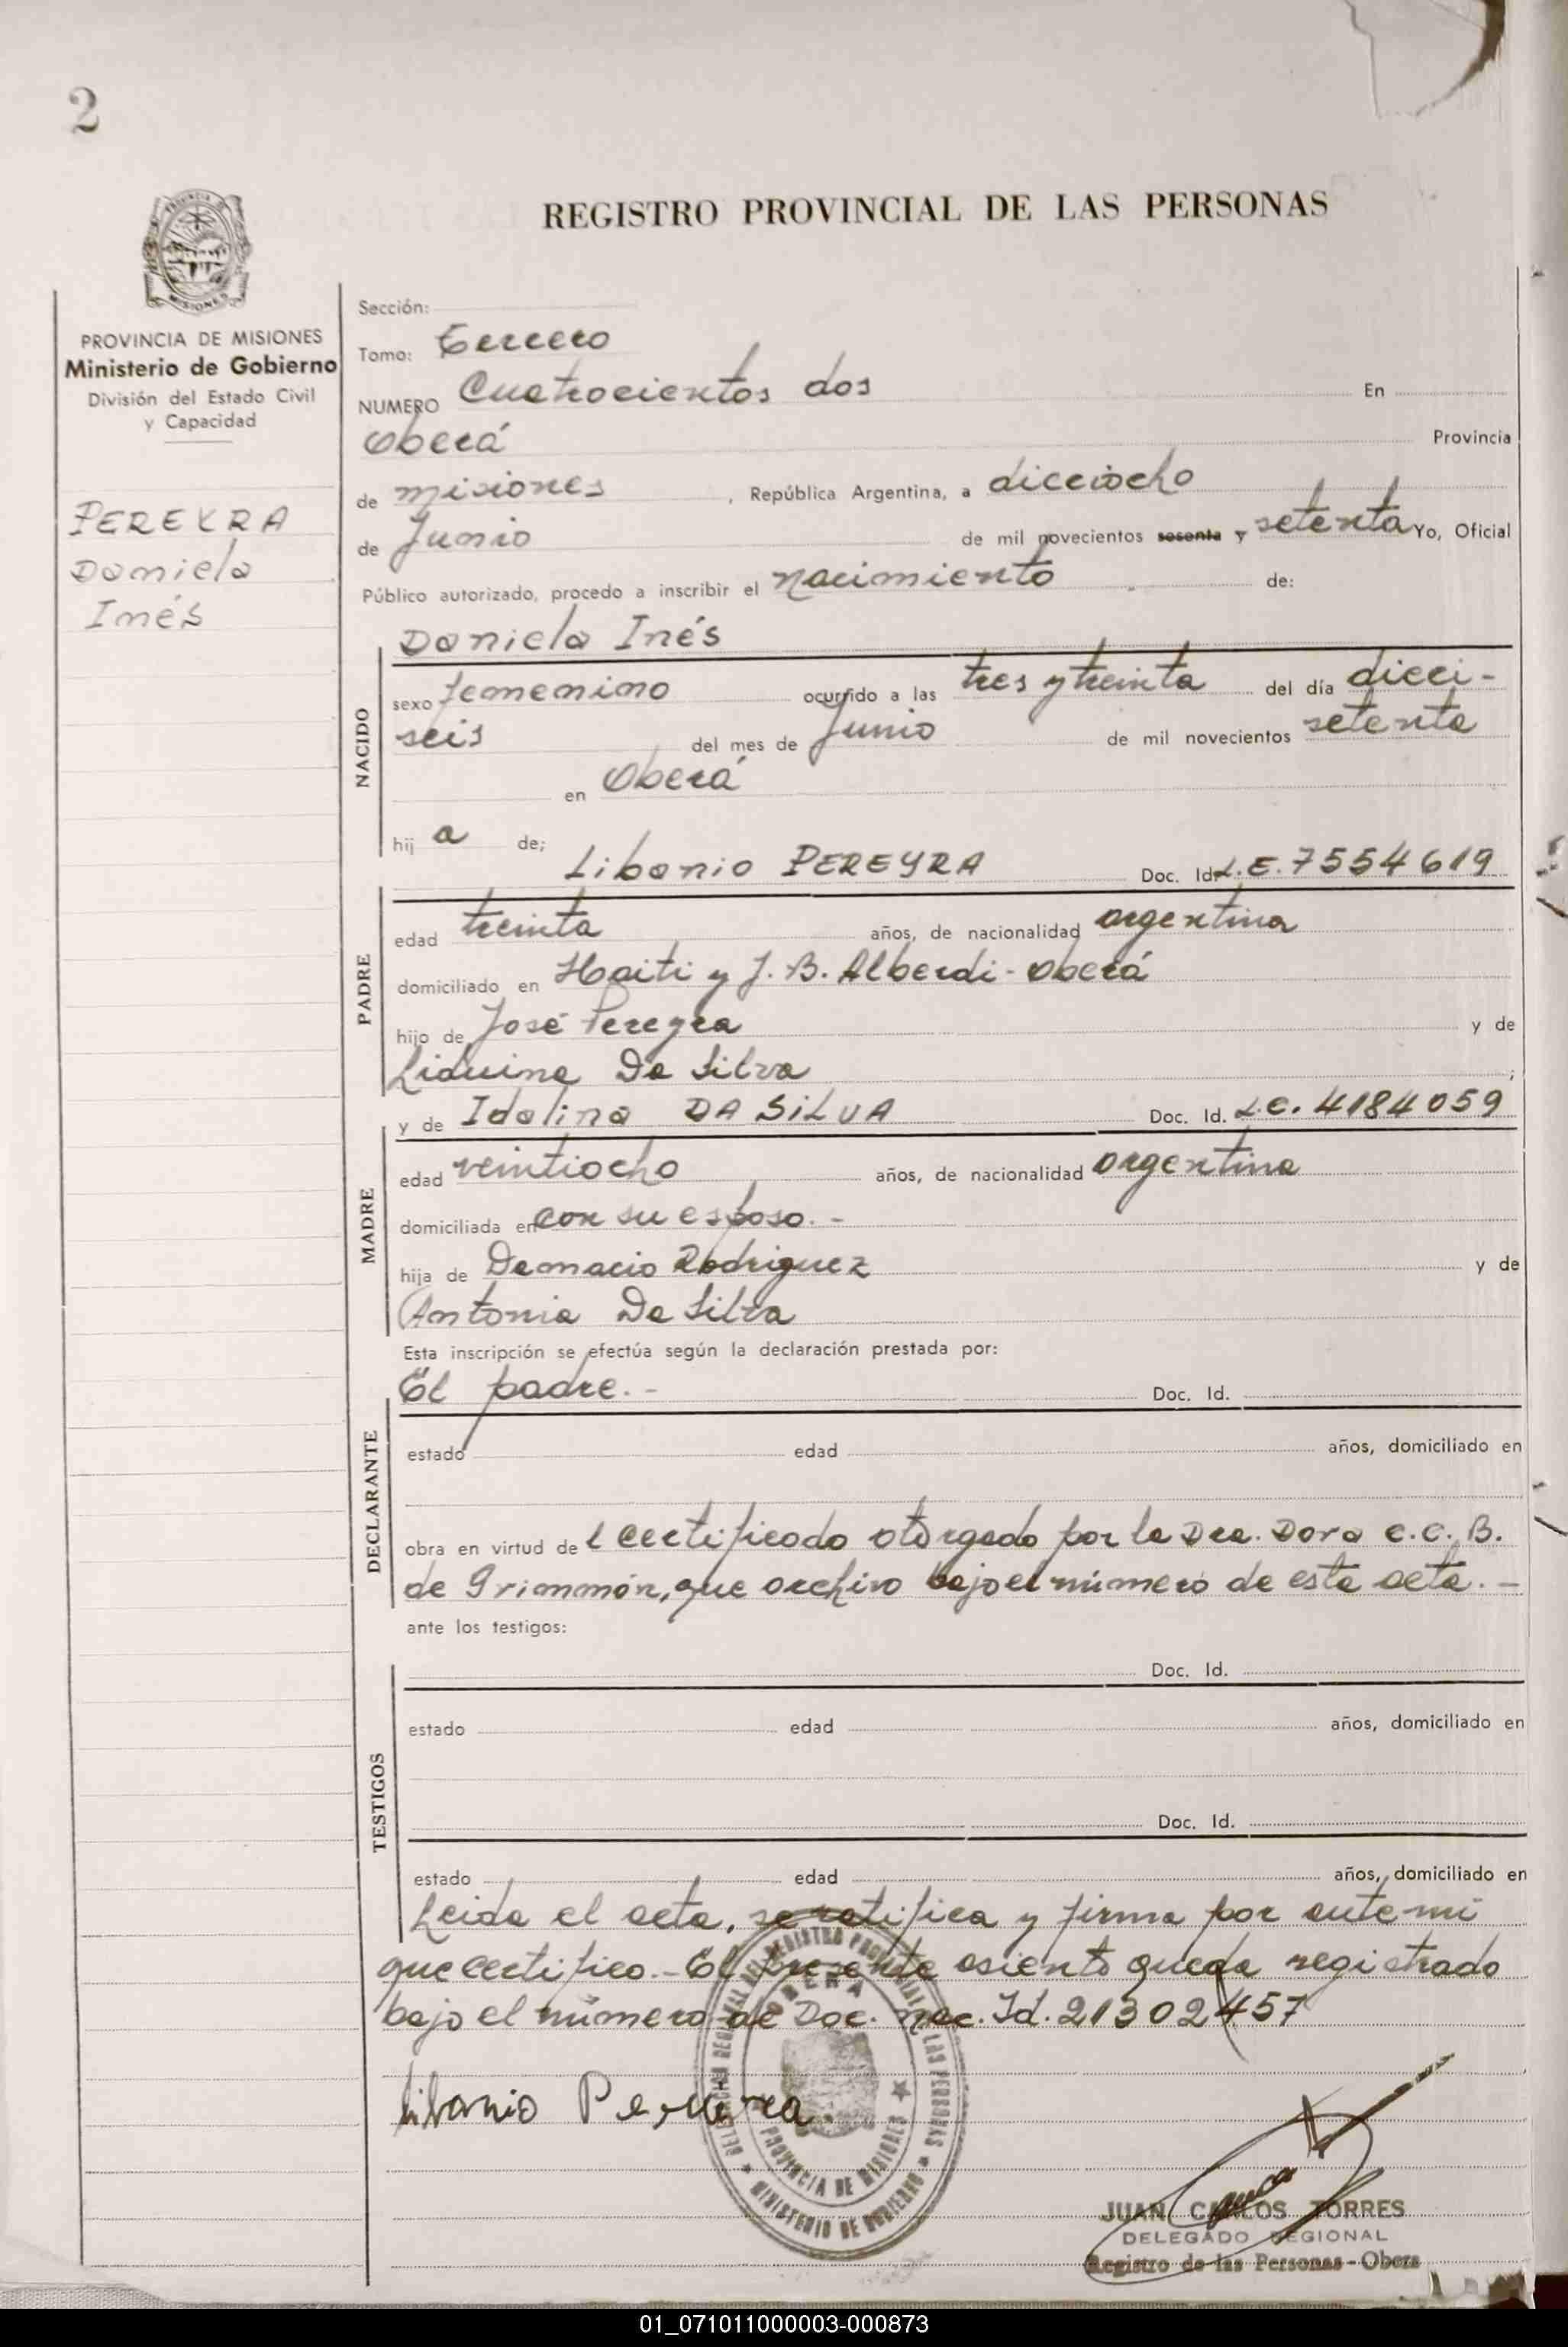 2
REGISTRO PROVINCIAL DE LAS PERSONAS
MISIONES
PROVINCIA DE MISIONES
Ministerio de Gobierno
División del Estado Civil
y Capacidad
PEREYRA
Daniela
Inés
Sección:
Tomo: Tercero
NUMERO Cuatrocientos dos En
Oberá Provincia
de misiones , República Argentina, a dieciocho
de Junio de mil novecientos sesenta y setenta Yo, Oficial
Público autorizado, procedo a inscribir el nacimiento de:
NACIDO
Daniela Inés
sexo femenino ocurrido a las tres y treinta del día dieci-
seis del mes de Junio de mil novecientos setenta
en Oberá
hij a de;
Libanio PEREYRA Doc. Id. L.E. 7554619
PADRE
edad treinta años, de nacionalidad argentina
domiciliado en Haiti y J. B. Alberdi - Oberá
hijo de José Pereyra y de
Liduina Da Silva ;
y de Idalina DA SILVA Doc. Id. L.C. 4184059
MADRE
edad veintiocho años, de nacionalidad argentina
domiciliada en con su esposo. -
hija de Damacio Rodriguez y de
Antonia Da Silva
Esta inscripción se efectúa según la declaración prestada por:
El padre. - Doc. Id.
DECLARANTE
estado edad años, domiciliado en
obra en virtud de l certificado otorgado por la Dra. Dora C. C. B.
de Grimmón, que archivo bajo el número de esta acta. -
ante los testigos:
TESTIGOS
Doc. Id.
estado edad años, domiciliado en
Doc. Id.
estado edad años, domiciliado en
Leida el acta, se ratifica y firma por ante mi
que certifico. - El presente asiento queda registrado
bajo el número de Doc. nac. Id. 21302457
Libanio Pereyra
OBERA
PROVINCIA DE MISIONES
MINISTERIO DE GOBIERNO
JUAN CARLOS TORRES
DELEGADO REGIONAL
Registro de las Personas - Obera
01_071011000003-000873